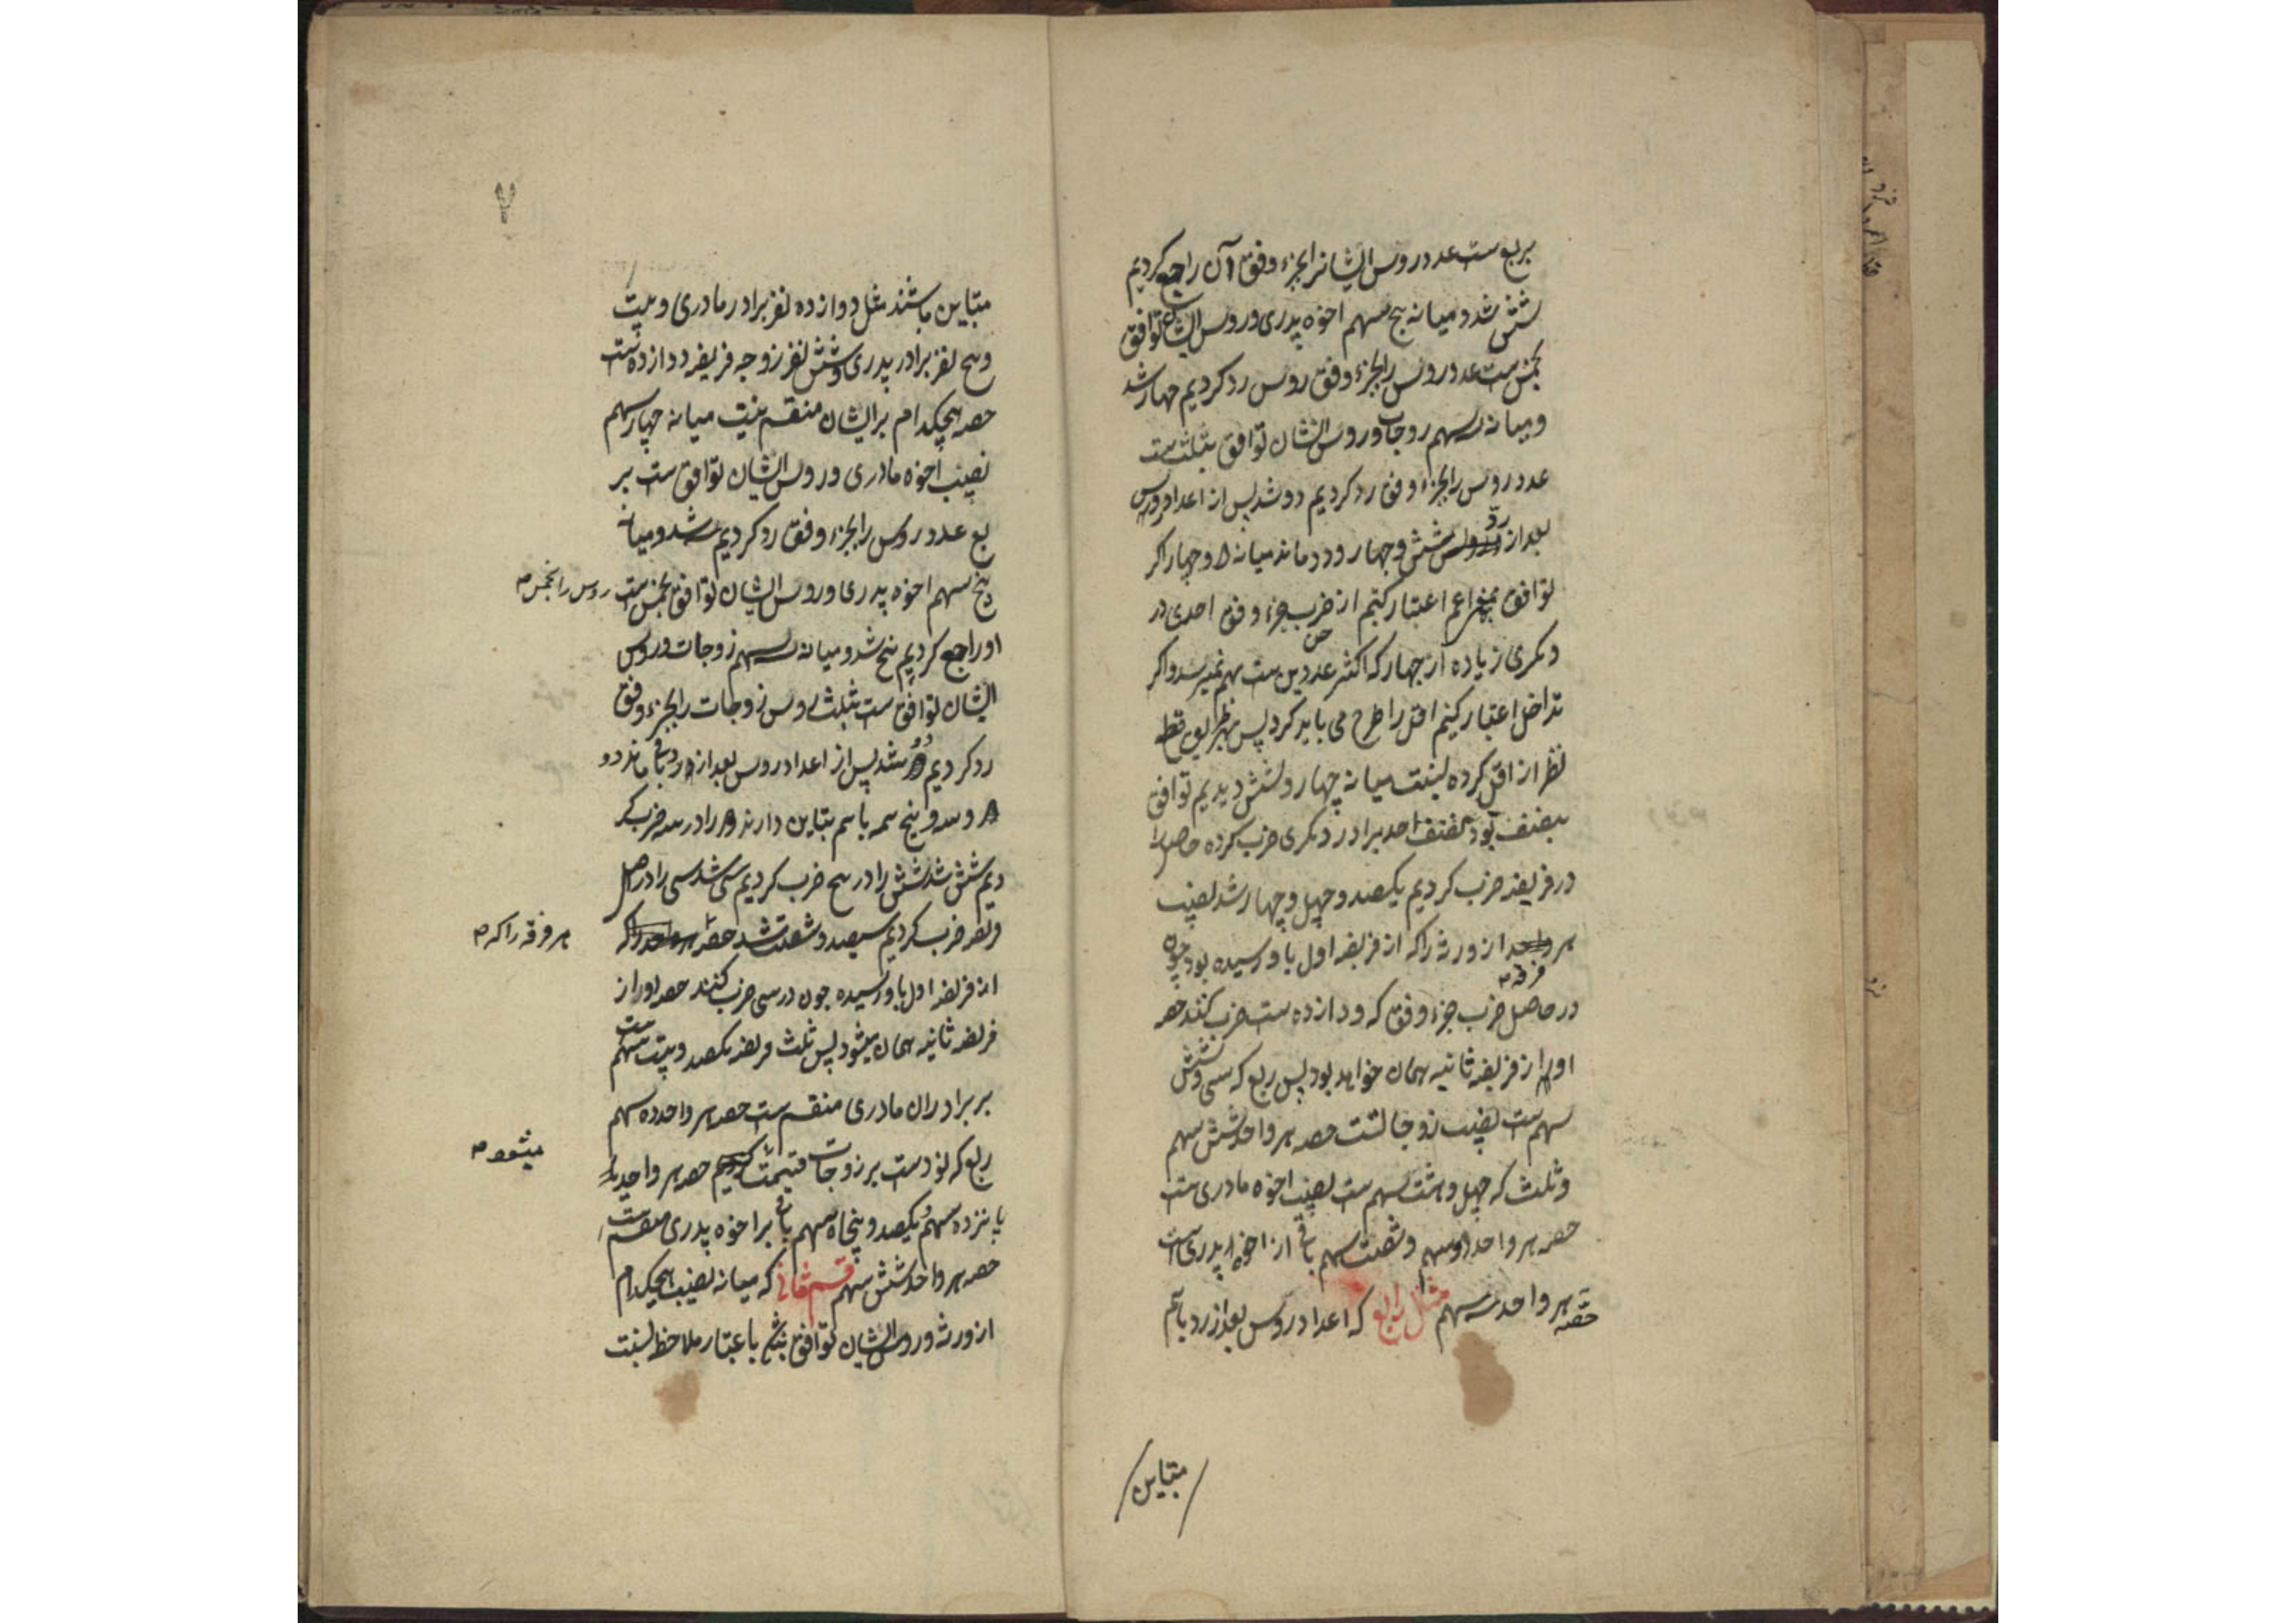 بربع ست عدد روس ایشانرا بجزء وفق آن راجع کردیم
شش شد و میانه پنج سهم اخوه پدری و روس ایشان توافق
بخمس ست عدد روس را بجزء وفق روس رد کردیم چهار شد
و میانه سه سهم زوجات و روس ایشان توافق بثلث ست
عدد روس را بجزء وفق رد کردیم دو شد پس از اعداد روس
بعد از رد شش و چهار و دو ماند میانه ۲ و چهار اکر
توافق اعم اعتبار کنیم از ضرب جزء وفق احدی در
دیکری زیاده از چهار که اکثر عددین ست بهم نمیرسد و اکر
تداخل اعتبار کنیم اقل را طرح می باید کرد پس قطع
نظر از اقل کرده نسبت میانه چهار و شش دیدیم توافق
بنصف بود نصف احد برا در دیکری ضرب کرده حاصل را
در فریضه ضرب کردیم یکصد و چهل و چهار شد نصیب
هر فرقه از ورثه را که از فریضه اول باو رسیده بود چون
در حاصل ضرب جزء وفق که دوازده ست ضرب کنند حصه
او از فریضه ثانیه همان خواهد بود پس ربع که سی و شش
سهم ست نصیب زوجاتست حصه هر واحد شش سهم
و ثلث که چهل و هشت سهم ست نصیب اخوه مادری ست
حصه هر واحد دو سهم و شصت سهم باقی از اخوه پدری ست
حصه هر واحد سه سهم مثال رابع که اعداد روس بعد از رد باهم
متباین
متباین باشند مثل دوازده نفر برادر مادری و بیست
و پنج نفر برادر پدری و شش نفر زوجه فریضه دوازده ست
حصه هیچکدام بر ایشان منقسم نیست میانه چهار سهم
نصیب اخوه مادری و روس ایشان توافق ست بر
بع عدد روس را بجزء وفق رد کردیم سه شد و میانه
پنج سهم اخوه پدری و روس ایشان توافق بخمس ست روس را بخمس
او راجع کردیم پنج شد و میانه سه سهم زوجات و روس
ایشان توافق ست بثلث روس زوجات را بجزء وفق
رد کردیم دو شد پس از اعداد روس بعد از رد باقی ماند دو
و سه و پنج همه باهم تباین دارند ۲ را در سه ضرب کر
دیم شش شد شش را در پنج ضرب کردیم سی شد سی را در اصل
فریضه ضرب کردیم سیصد و شصت شد حصه هر فرقه را که
از فریضه اول باو رسیده چون در سی ضرب کنند حصه او از
فریضه ثانیه همان میشود پس ثلث فریضه یکصد و بیست سهم ست
بر برادران مادری منقسم ست حصه هر واحد ده سهم
ربع که نود ست بر زوجات قسمت میشود حصه هر واحد
پانزده سهم و یکصد و پنجاه سهم باقی بر اخوه پدری منقسم ست
حصه هر واحد شش سهم قسم ثانی که میانه نصیب هیچکدام
از ورثه و روس ایشان توافق نباشد باعتبار ملاحظه نسبت